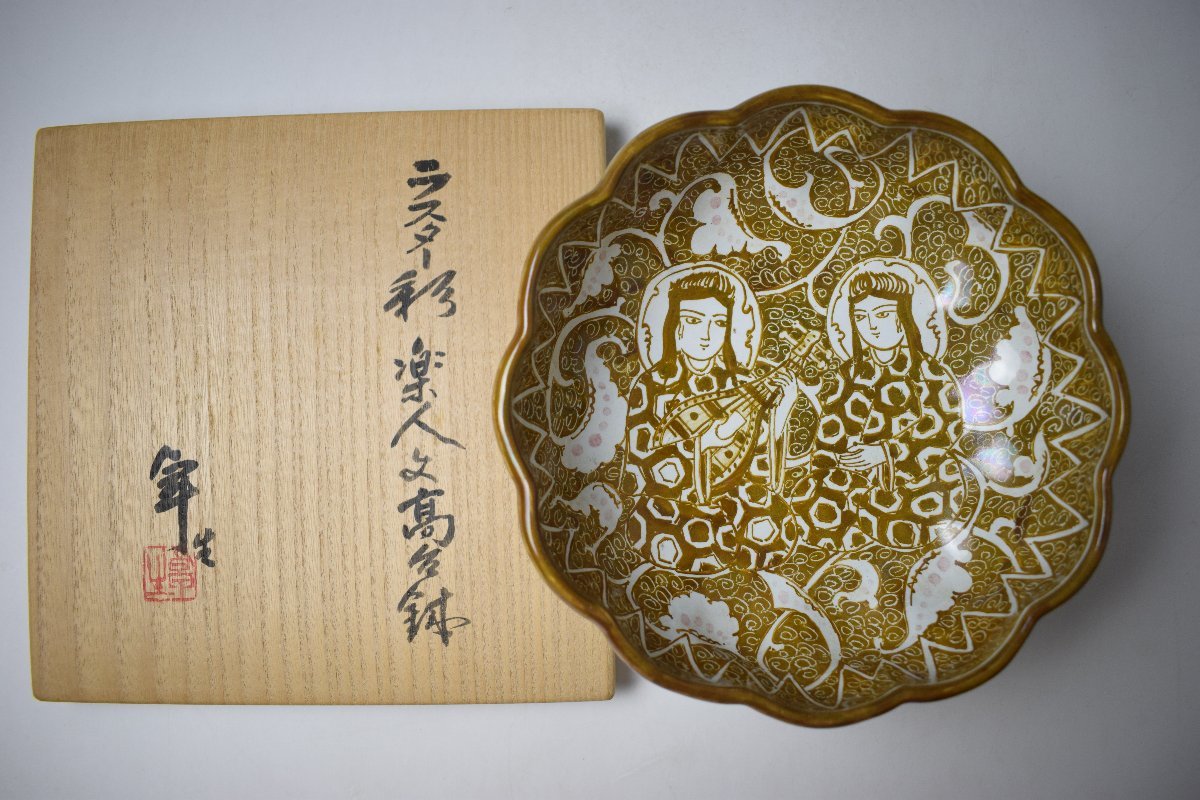 ラスター彩 楽人文高台鉢
年生